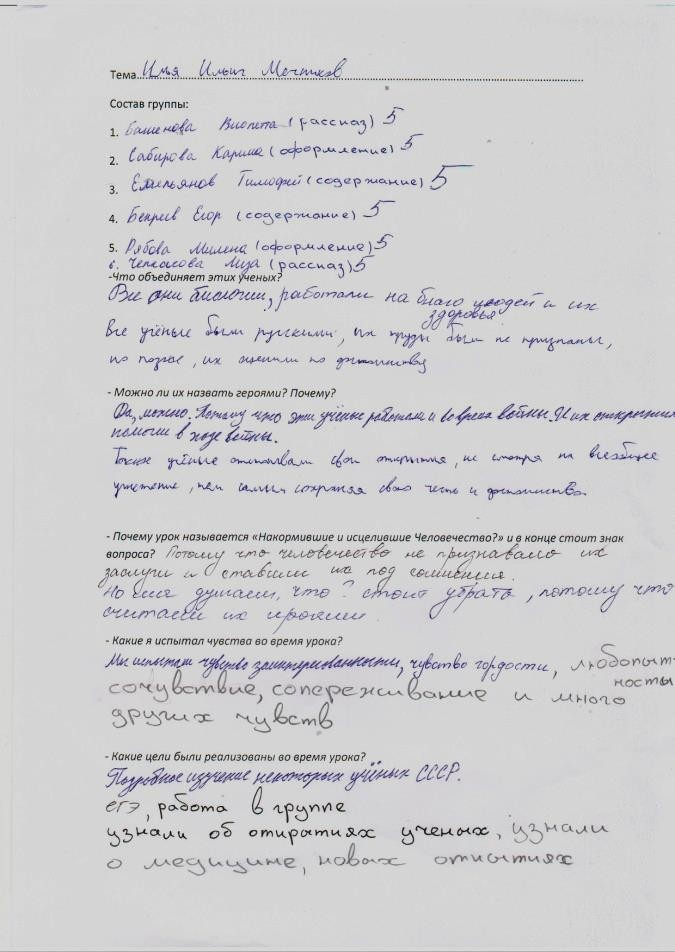 Тема Илья Ильич Мечников
Состав группы:
1. Баженова Виолетта (рассказ) 5
2. Сабирова Карина (оформление) 5
3. Емельянов Тимофей (содержание) 5
4. Егор (содержание) 5
5. Рябова Милена (оформление) 5
6. Черкасова Лиза (рассказ) 5
-Что объединяет этих ученых?
Все они биологи, работали на благо людей и их
здоровья
Все учёные были русскими, их труды были не признаны,
но позже, их оценили по достоинству
- Можно ли их назвать героями? Почему?
Да, можно. Потому что эти учёные работали и во время войны. И их открытия
помогли в ходе войны.
Также учёные отстаивали свои открытия, не смотря на всеобщее
угнетение, тем самым сохраняя свою честь и достоинство.
- Почему урок называется «Накормившие и исцелившие Человечество?» и в конце стоит знак
вопроса? Потому что человечество не признавало их
заслуги и ставили их под сомнения.
Но мы думаем, что ? стоит убрать, потому что
считаем их героями.
- Какие я испытал чувства во время урока?
Мы испытали чувство заинтересованности, чувство гордости, любопыт-
ность
сочувствие, сопереживание и много
других чувств
- Какие цели были реализованы во время урока?
Подробное изучение некоторых учёных СССР.
егэ, работа в группе
узнали об открытиях ученых, узнали
о медицине, новых открытиях